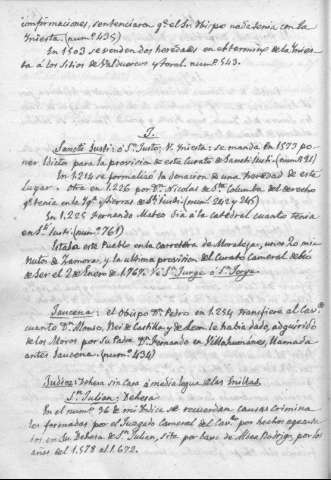 confirmaciones, sentenciaron q.e el Sr. Obispo nada tenia con la
Iniesta. (num.o 435)
En 1503 se venden dos heredades en el termino de la Inies-
ta a los sitios de Valdueros y Toral. num.o 543.
I.
Sancti Iusti: ó S.n Justo, V. Iniesta: se manda en 1577 po-
ner Edicto para la provision de este Curato de Sancti Iusti. (num.o 21)
En 1.214 se formalizó la donacion de una heredad de este
lugar. otra en 1.226 por D.n Nicolas de S.ta Columba del derecho
q.e tenia en la Ygl.a y tierras de S.ti Iusti. (num.os 242 y 245)
En 1.225 Fernando Mateo dió á la Catedral cuanto tenia
en S.ti Iusti (num.o 761)
Estaba este Pueblo en la Carretera de Moraleja, unos 20 mi-
nutos de Zamora, y la ultima provision del Curato Cameral debió
de ser el 2 de Enero de 1767. V. S.n Jurge ó S.n Jorge.
Jaucena: el Obispo D.n Pedro en 1.254 transfiere al Cav.do
cuanto D.n Alonso, Rei de Castilla y de Leon le habia dado, adquirido
de los Moros por su Padre D.n Fernando en Villahumanes, llamada
antes Jaucena. (num.o 434)
Judíez: Dehesa sin Casa á media legua de las Enillas.
S.n Julian: Dehesa
En el num.o 36 de mi Indice se recuerdan causas crimina-
les formadas por el Juzgado Cameral del Cav.do por hechos aconte-
cidos en su Dehesa de S.n Julian, sita por bajo de Mico Rodrigo, por los
años del 1.578 al 1.672.